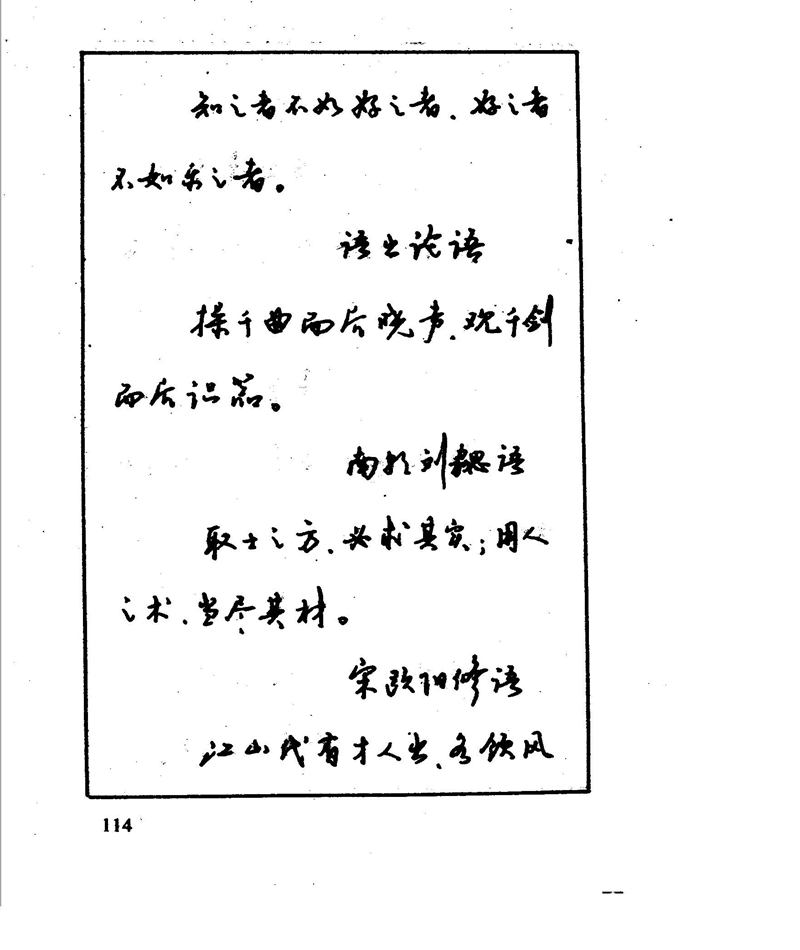 知之者不如好之者，好之者
不如乐之者。
语出论语
操千曲而后晓声，观千剑
而后识器。
南朝刘勰语
取士之方，必求其实；用人
之术，当尽其材。
宋欧阳修语
江山代有才人出，各领风
114